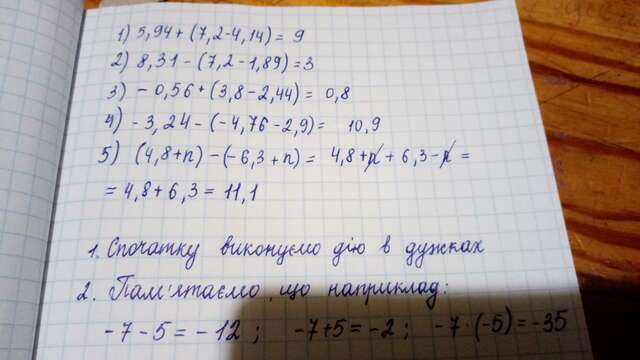 1) 5,94 + (7,2-4,14) = 9
2) 8,31 - (7,2 - 1,89) = 3
3) - 0,56 + (3,8 - 2,44) = 0,8
4) - 3,24 - (-4,76 - 2,9) = 10,9
5) (4,8+n) - (-6,3 + n) = 4,8 + n + 6,3 - n =
= 4,8 + 6,3 = 11,1
1. Спочатку виконуємо дію в дужках
2. Пам'ятаємо, що наприклад:
-7 - 5 = - 12 ; -7+5 = -2 ; -7 · (-5) = -35